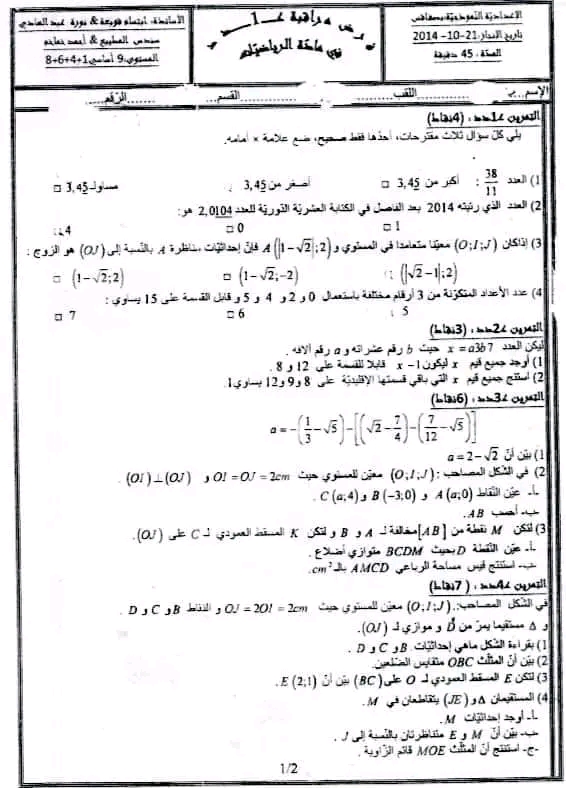 الإعدادية النموذجية بصفاقس
تاريخ الإنجاز: 21-10-2014
المدة: 45 دقيقة
فرض مراقبة عـ1ـدد
في مادة الرياضيات
الأساتذة:
المستوى: 9 أساسي 1+4+6+8
الإسم اللقب القسم الرقم
التمرين عـ1ـدد: (4نقاط)
يلي كلّ سؤال ثلاث مقترحات، أحدها فقط صحيح، ضع علامة × أمامه.
1) العدد 38/11 : أكبر من 3,45 □ أصغر من 3,45 مساو لـ 3,45 □
2) العدد الذي رتبته 2014 بعد الفاصل في الكتابة العشريّة الدّوريّة للعدد 2,0104 هو:
□ 1 □ 0 4
3) إذا كان (O;I;J) معيّنا متعامدا في المستوي و A(|1-√2|;2) فإنّ إحداثيّات مناظرة A بالنّسبة إلى (OJ) هو الزوج :
(|√2-1|;2) □ (1-√2;-2) □ (1-√2;2) □
4) عدد الأعداد المتكوّنة من 3 أرقام مختلفة باستعمال 0 و 2 و 4 و 5 و قابل القسمة على 15 يساوي :
5 □ 6 □ 7
التمرين عـ2ـدد: (3نقاط)
ليكن العدد x = a3b7 حيث b رقم عشراته و a رقم آلافه .
1) أوجد جميع قيم x ليكون x-1 قابلا للقسمة على 12 و 8 .
2) استنتج جميع قيم x التي باقي قسمتها الإقليديّة على 8 و 9 و 12 يساوي 1.
التمرين عـ3ـدد: (6نقاط)
a = -(1/3 - √5) - [(√2 - 7/4) - (7/12 - √5)]
1) بيّن أنّ a = 2-√2
2) في الشّكل المصاحب : (O;I;J) معيّن للمستوي حيث OI = OJ = 2cm و (OI)⊥(OJ) .
-أ- عيّن النّقاط A(a;0) و B(-3;0) و C(a;4) .
-ب- أحسب AB .
3) لتكن M نقطة من [AB] مخالفة لـ A و B و لتكن K المسقط العمودي لـ C على (OJ).
-أ- عيّن النّقطة D بحيث BCDM متوازي أضلاع .
-ب- استنتج قيس مساحة الرباعي AMCD بالـ cm².
التمرين عـ4ـدد: ( 7نقاط)
في الشّكل المصاحب: (O;I;J) معيّن للمستوي حيث OJ = 2OI = 2cm و النقاط B و C و D .
و Δ مستقيما يمرّ من D و موازي لـ (OJ).
1) بقراءة الشّكل ماهي إحداثيّات. B و C و D .
2) بيّن أنّ المثلّث OBC متقايس الضّلعين.
3) لتكن E المسقط العمودي لـ O على (BC) بيّن أنّ E(2;1) .
4) المستقيمان Δ و (JE) يتقاطعان في M .
-أ- أوجد إحداثيّات M .
-ب- بيّن أنّ M و E متناظرتان بالنّسبة إلى J .
-ج- استنتج أنّ المثلّث MOE قائم الزّاوية .
1/2